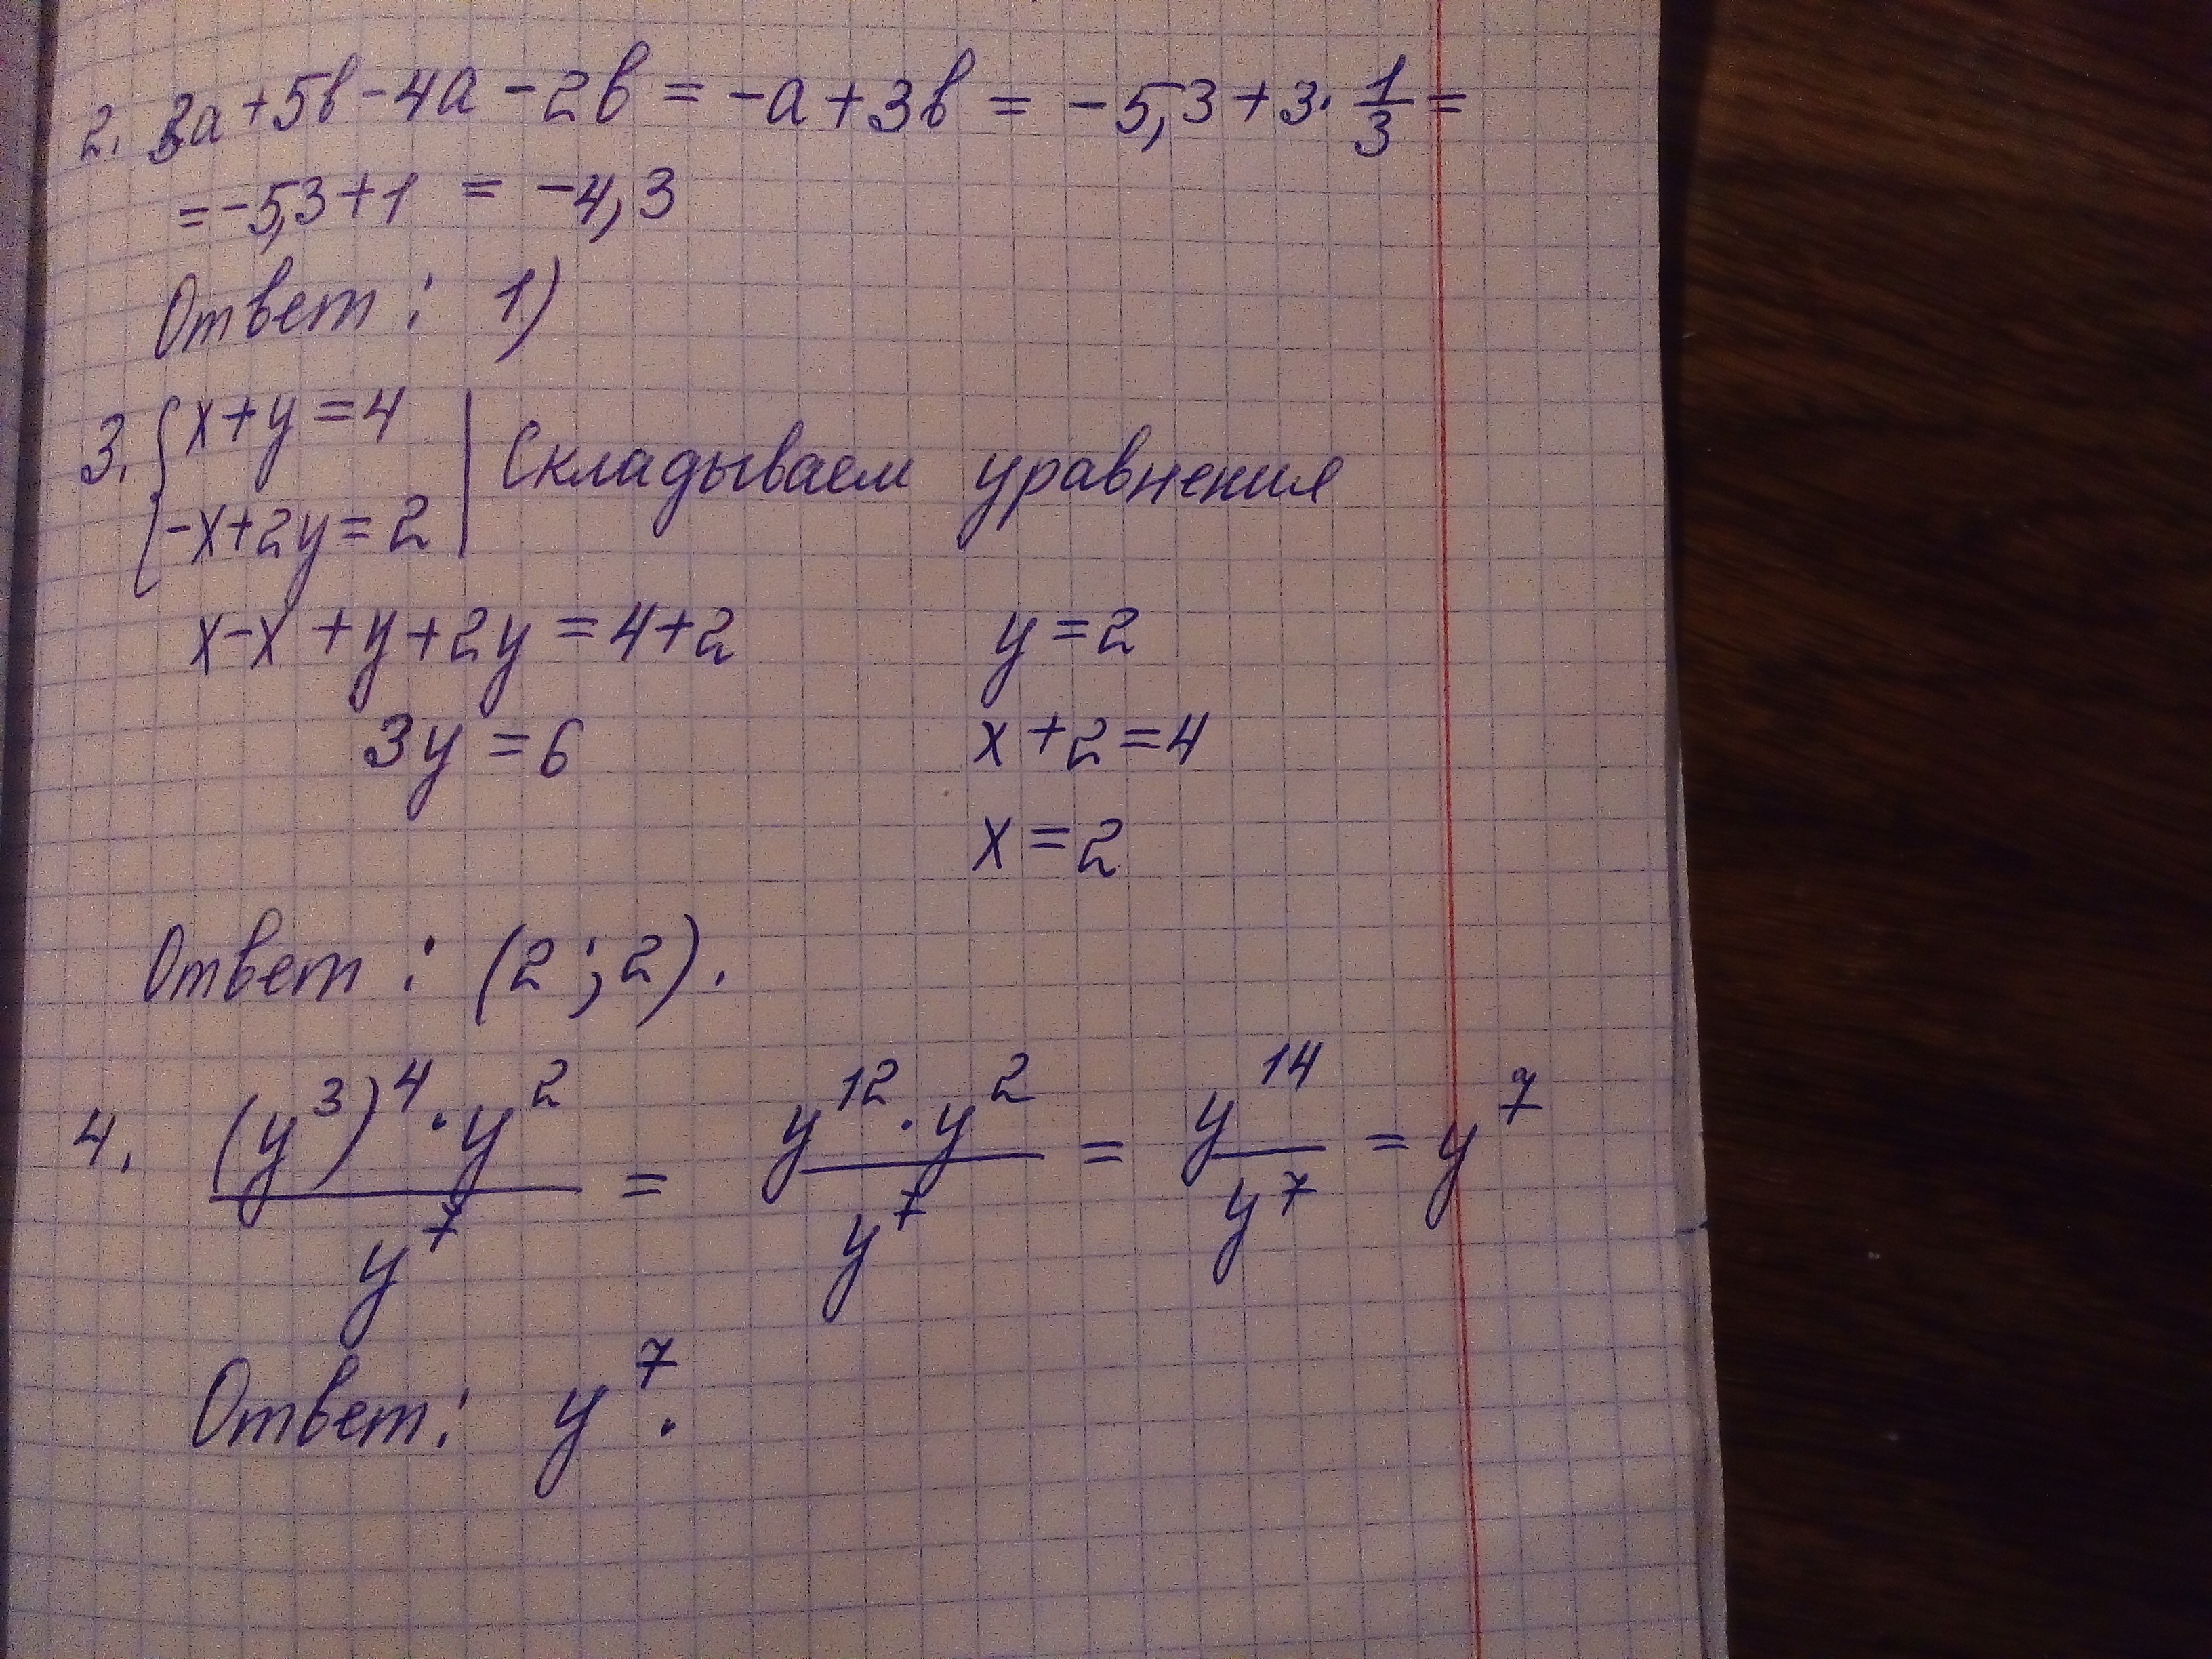 2. 3а+5в-4а-2в = -а+3в = -5,3+3·1/3=
=-5,3+1 = -4,3
Ответ: 1)
3. {x+y=4 | Складываем уравнения
-x+2y=2
x-x+y+2y=4+2 y=2
3y=6 x+2=4
x=2
Ответ: (2;2).
4. (y³)⁴·y²/y⁷ = y¹²·y²/y⁷ = y¹⁴/y⁷ = y⁷
Ответ: y⁷.